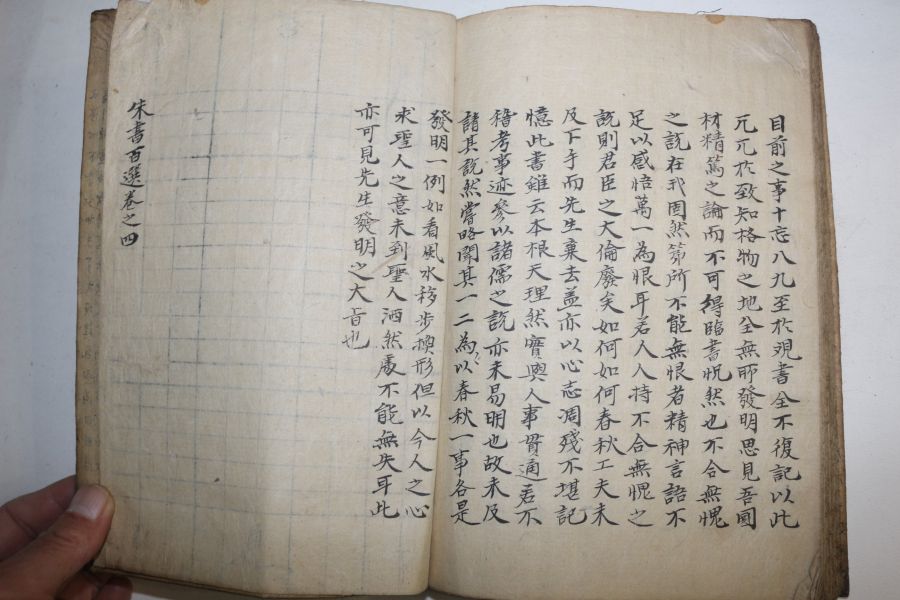 目前之事十忘八九至於观書全不復記以此
兀兀於致知格物之地全無所發明思見吾國
材精篤之論而不可得臨書怳然也不合無愧
之説在我固然第所不能無恨者精神言語不
足以感悟萬一為恨耳若人人持不合無愧之
説則君臣之大倫廢矣如何如何春秋工夫未
及下手而先生棄去盖亦以心志凋殘不堪記
憶此書雖云本根天理然實與人事貫通若不
稽考事迹参以諸儒之説亦未易明也故未及
請其説然嘗略聞其一二以為春秋一事各是
發明一例如看風水移步換形但以今人之心
求聖人之意未到聖人洒然處不能無失耳此
亦可見先生發明之大旨也
朱書百選卷之四